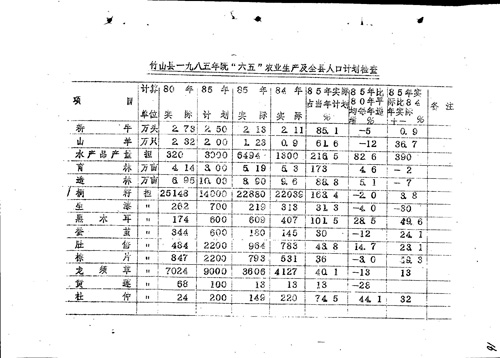 竹山县一九八五年既“六五”农业生产及全县人口计划检查
项 目 计算单位 80年实际 85年计划 85年实际 84年实际 85年实际占当年计划% 85年比80年平均每年递增% 85年实际比84年实际+-% 备注
耕牛 万头 2.73 2.50 2.13 2.11 85.1 -5 0.9
山羊 万只 2.32 2.00 1.23 0.9 61.6 -12 36.7
水产品产量 担 320 3000 6494 1300 216.5 82.6 390
育林 万亩 4.14 3.00 5.19 5.3 173 4.6 -2
造林 万亩 6.95 10.00 8.90 9.6 88.8 5.1 -7
桐籽 担 25148 14000 22880 22039 163.4 -2.0 3.8
生漆 〃 262 700 219 313 31.3 -4.0 -30
黑木耳 〃 174 600 609 407 101.5 28.5 49.6
蚕茧 〃 344 600 180 145 30 -12 24.1
肚倍 〃 484 2200 964 783 43.8 14.7 23.1
棕片 〃 847 2200 793 531 36 -3.0
龙须草 〃 7024 9000 3606 4127 40.1 -13 13
黄连 〃 68 100 13 13 13 -28
杜仲 〃 24 200 149 220 74.5 44.1 32